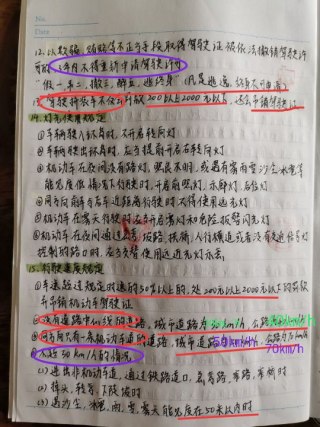 No.
Date
12.以欺骗、贿赂等不正当手段取得驾驶证被依法撤销驾驶许可的,3年内不得重新申请驾驶许可
"假一车二,撤三,醉五,逃终身"
13.驾驶拼装车不仅会被罚200以上2000元以下,还会吊销驾驶证
14.灯光使用规定
①车辆驶入环岛时,不开启转向灯
②车辆驶出环岛时,应当提前开启右转向灯
③机动车在夜间没有路灯,照明不良,或遇有雾雨雪沙尘冰雹等
能见度低情况下行驶时,开启前照灯、示廓灯、后位灯
④同方向前车与后车近距离行驶时不得使用远光灯
⑤机动车在雾天行驶时应当开启雾灯和危险报警闪光灯
⑥机动车在夜间通过急弯、坡路、拱桥、人行横道或者没有交通信号灯
控制的路口时,应当交替使用远近光灯示意
15.行驶速度规定
①车速超过规定时速的50%以上的,处200元以上2000元以下的罚款
并吊销机动车驾驶证
②没有道路中心线的道路,城市道路为30km/h,公路为40km/h
③同方向只有一条机动车道的道路,城市道路为50km/h,公路为70km/h
④不超30km/h的情况
(1)进出非机动车道,通过铁路道口,急弯路,窄路,窄桥时
(2)掉头,转弯,下陡坡时
(3)遇雾,雨,雪,能见度在50米以内时